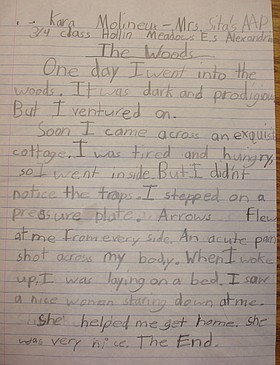 Kara Molineux - Mrs. Sita's AAP
3/4 class Hollin Meadows E.S Alexandria
The Woods
One day I went into the
woods. It was dark and prodigou
But I ventured on.
Soon I came across an exquis
cottage. I was tired and hungry,
so I went inside. But I didn't
notice the traps. I stepped on a
pressure plate. Arrows Flew
at me from every side. An acute pain
shot across my body. When I woke
up, I was laying on a bed. I saw
a nice woman staring down at me.
She helped me get home. She
was very nice. The End.